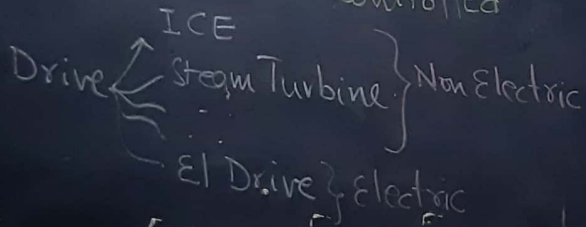 ICE
Drive Steam Turbine } Non Electric
El Drive } Electric